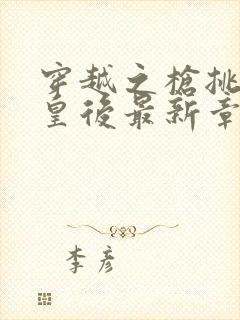 穿越之槍挑
皇後最新章
李彥